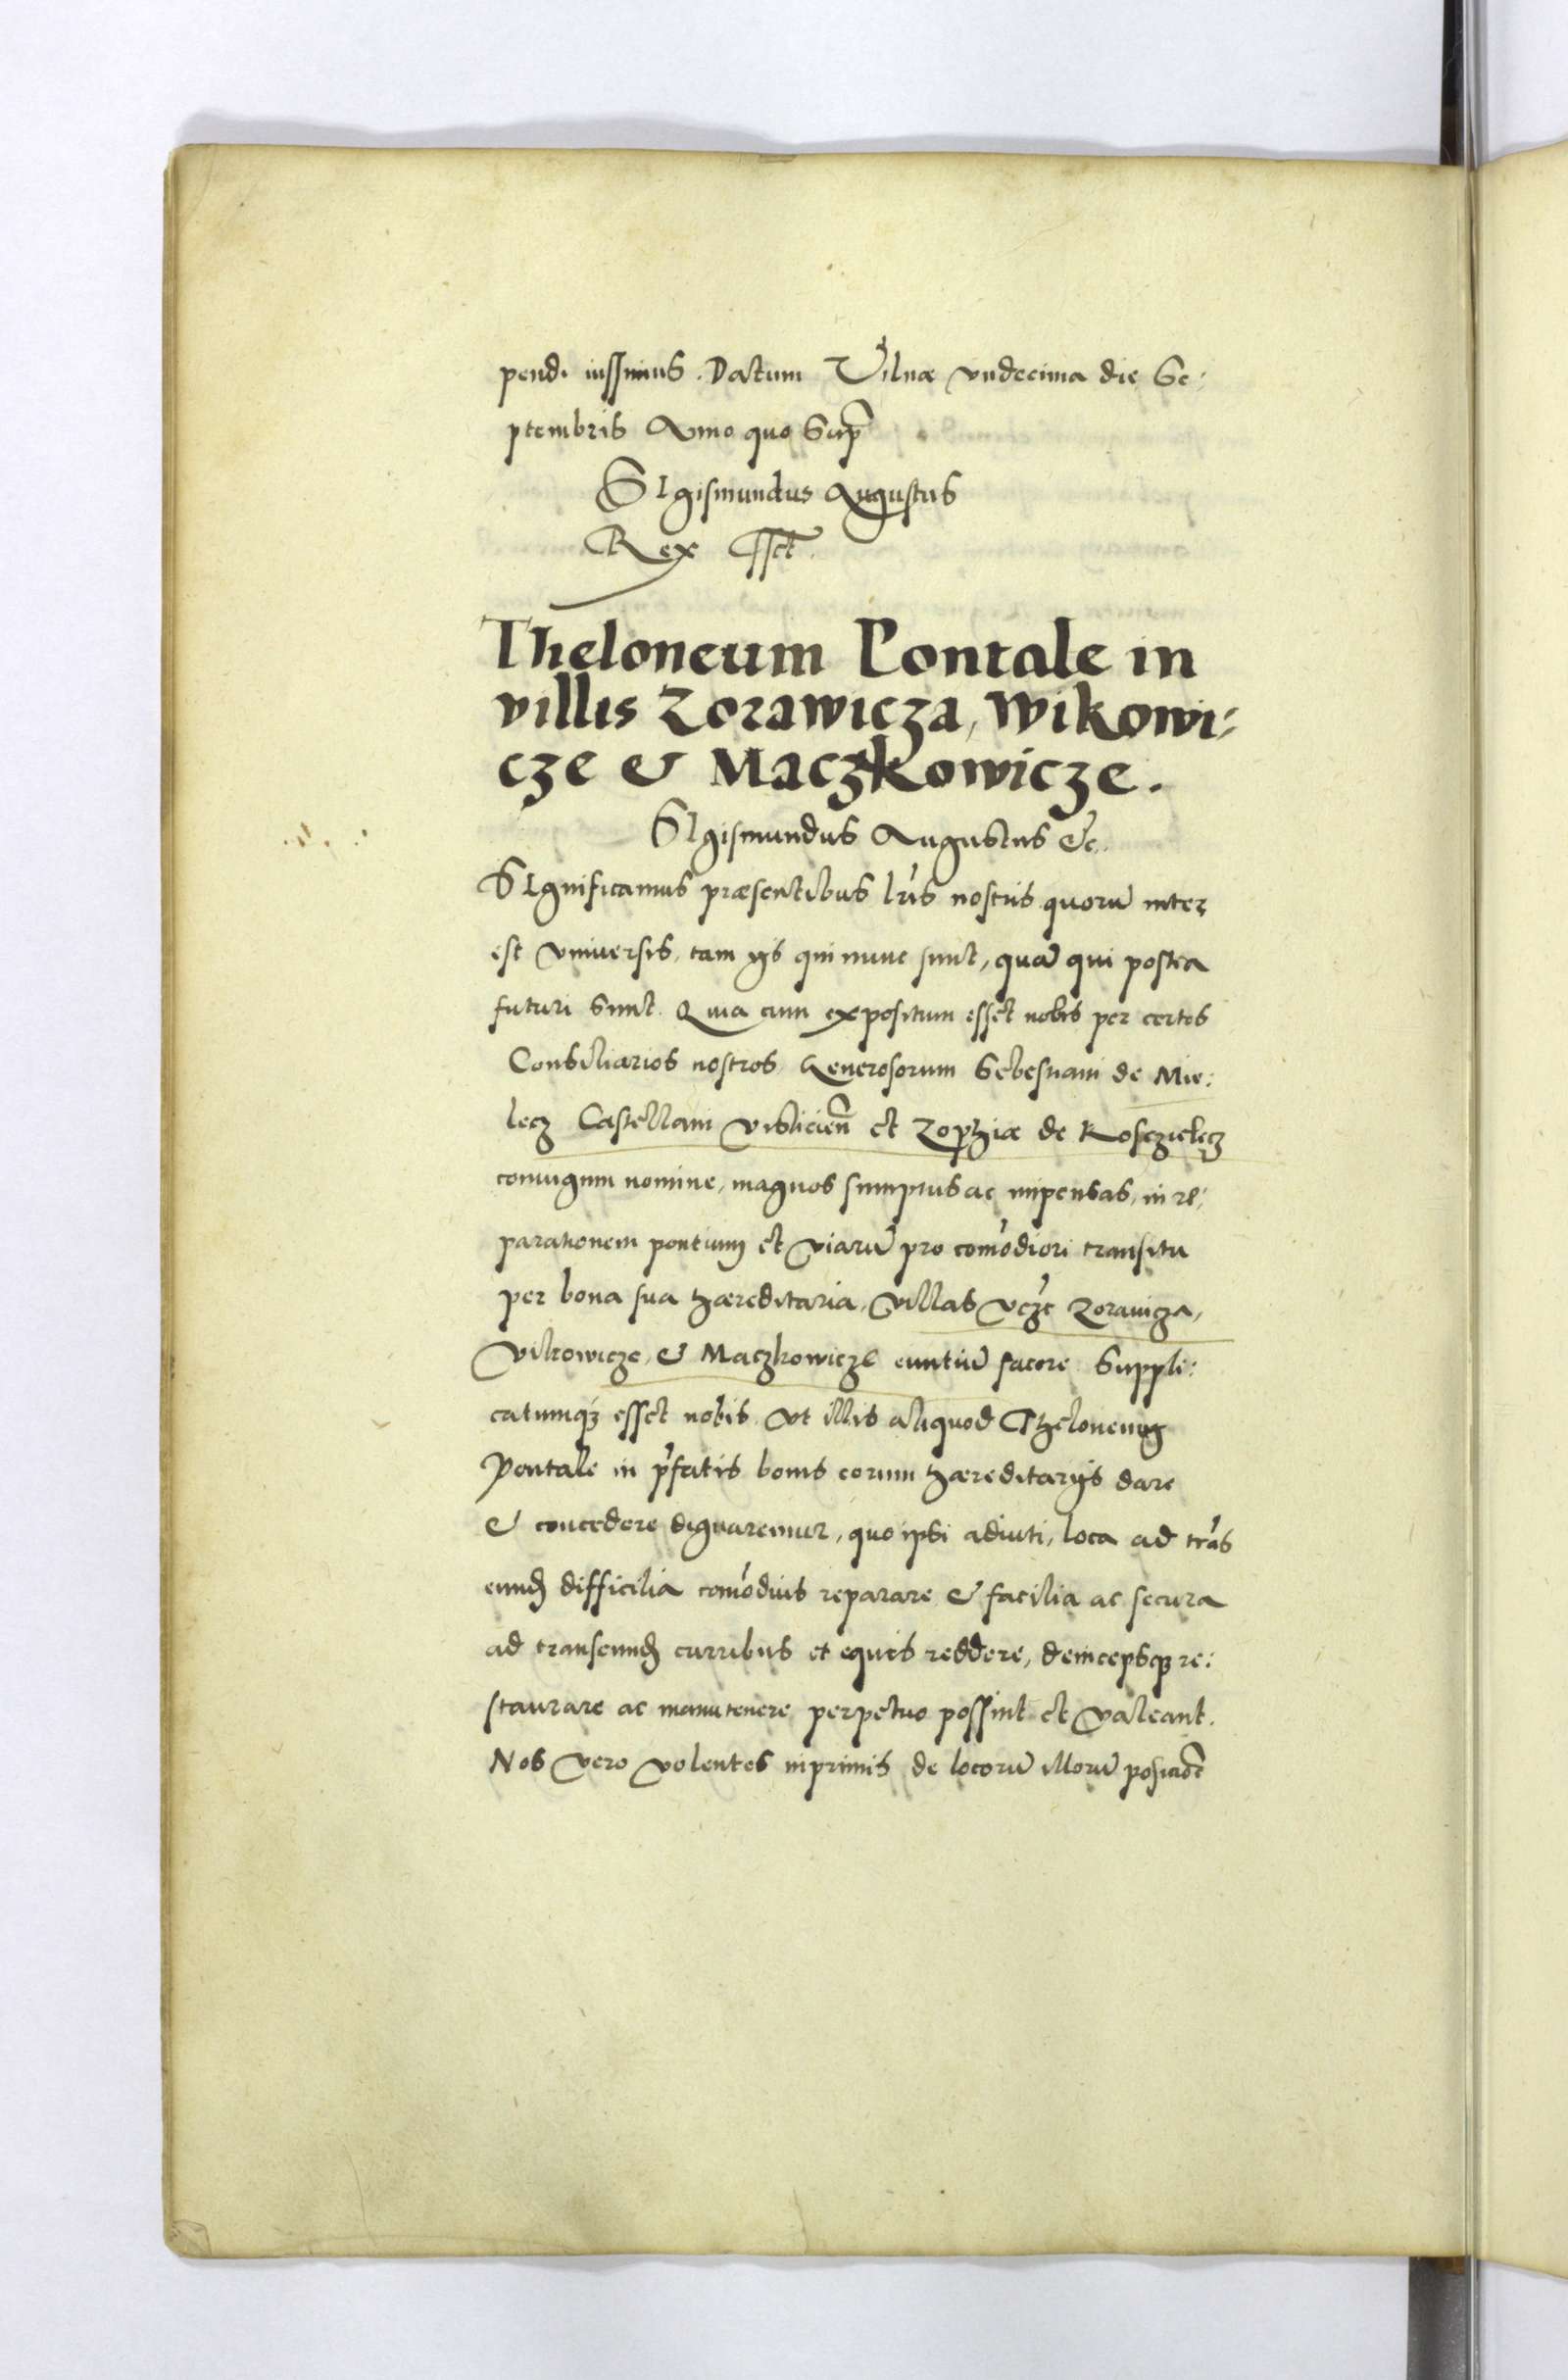 pendi iussimus. Datum Vilnæ vndecima die Se:
ptembris Anno quo Supr̃
SIgismundus Augustus
Rex sst.
Theloneum Pontale in
villis Zorawicza, Wikowi:
cze & Maczkowicze.
SIgismundus Augustus &c.
SIgnificamus præsentibus lr̃is nostris quorũ inter
est vniuersis, tam ijs qui nunc sunt, quã qui postea
futuri sunt. Quia cum expositum esset nobis per certos
Consiliarios nostros Generosorum Sebestiani de Mie:
lecz Castellani Visliciẽn et Zophiæ de Kosczielecz
coniugum nomine, magnos sumptus ac impensas, in re:
parationem pontium et viarũ pro com̃odiori transitu
per bona sua hæreditaria, villas vcz̃e Zorauicza,
Vikowicze, & Maczkowicze euntiũ facere Suppli:
catumqꝫ esset nobis vt illis aliquod Theloneum
Pontale in p̃fatis bonis eorum hæreditarijs dare
& concedere dignaremur, quo ipsi adiuti, loca ad trãs
eund difficilia com̃odius reparare & facilia ac secura
ad transeund curribus et equis reddere, deincepsqꝫ re:
staurare ac manutenere perpetuo possint et valeant.
Nos vero volentes inprimis de locorũ illorũ posiciõe